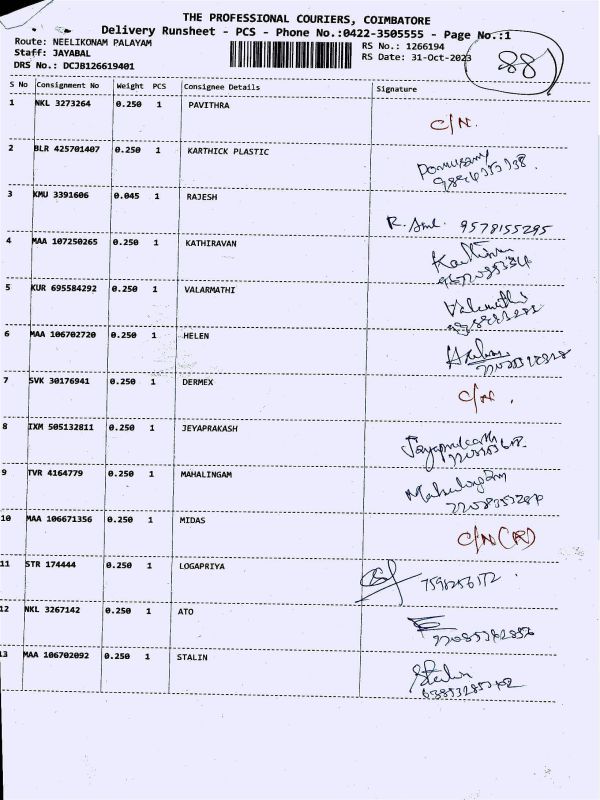 THE PROFESSIONAL COURIERS, COIMBATORE
Delivery Runsheet - PCS - Phone No.:0422-3505555 - Page No.:1
Route: NEELIKONAM PALAYAM
Staff: JAYABAL
DRS No.: DCJB126619401
RS No.: 1266194
RS Date: 31-Oct-2023
88
S No Consignment No Weight PCS Consignee Details Signature
1 NKL 3273264 0.250 1 PAVITHRA C/N.
2 BLR 425701407 0.250 1 KARTHICK PLASTIC
3 KMU 3391606 0.045 1 RAJESH 9578155295
4 MAA 107250265 0.250 1 KATHIRAVAN
5 KUR 695584292 0.250 1 VALARMATHI
6 MAA 106702720 0.250 1 HELEN
7 SVK 30176941 0.250 1 DERMEX C/N.
8 IXM 505132811 0.250 1 JEYAPRAKASH
9 TVR 4164779 0.250 1 MAHALINGAM
10 MAA 106671356 0.250 1 MIDAS C/N (R)
11 STR 174444 0.250 1 LOGAPRIYA
12 NKL 3267142 0.250 1 ATO
13 MAA 106702092 0.250 1 STALIN Stalin